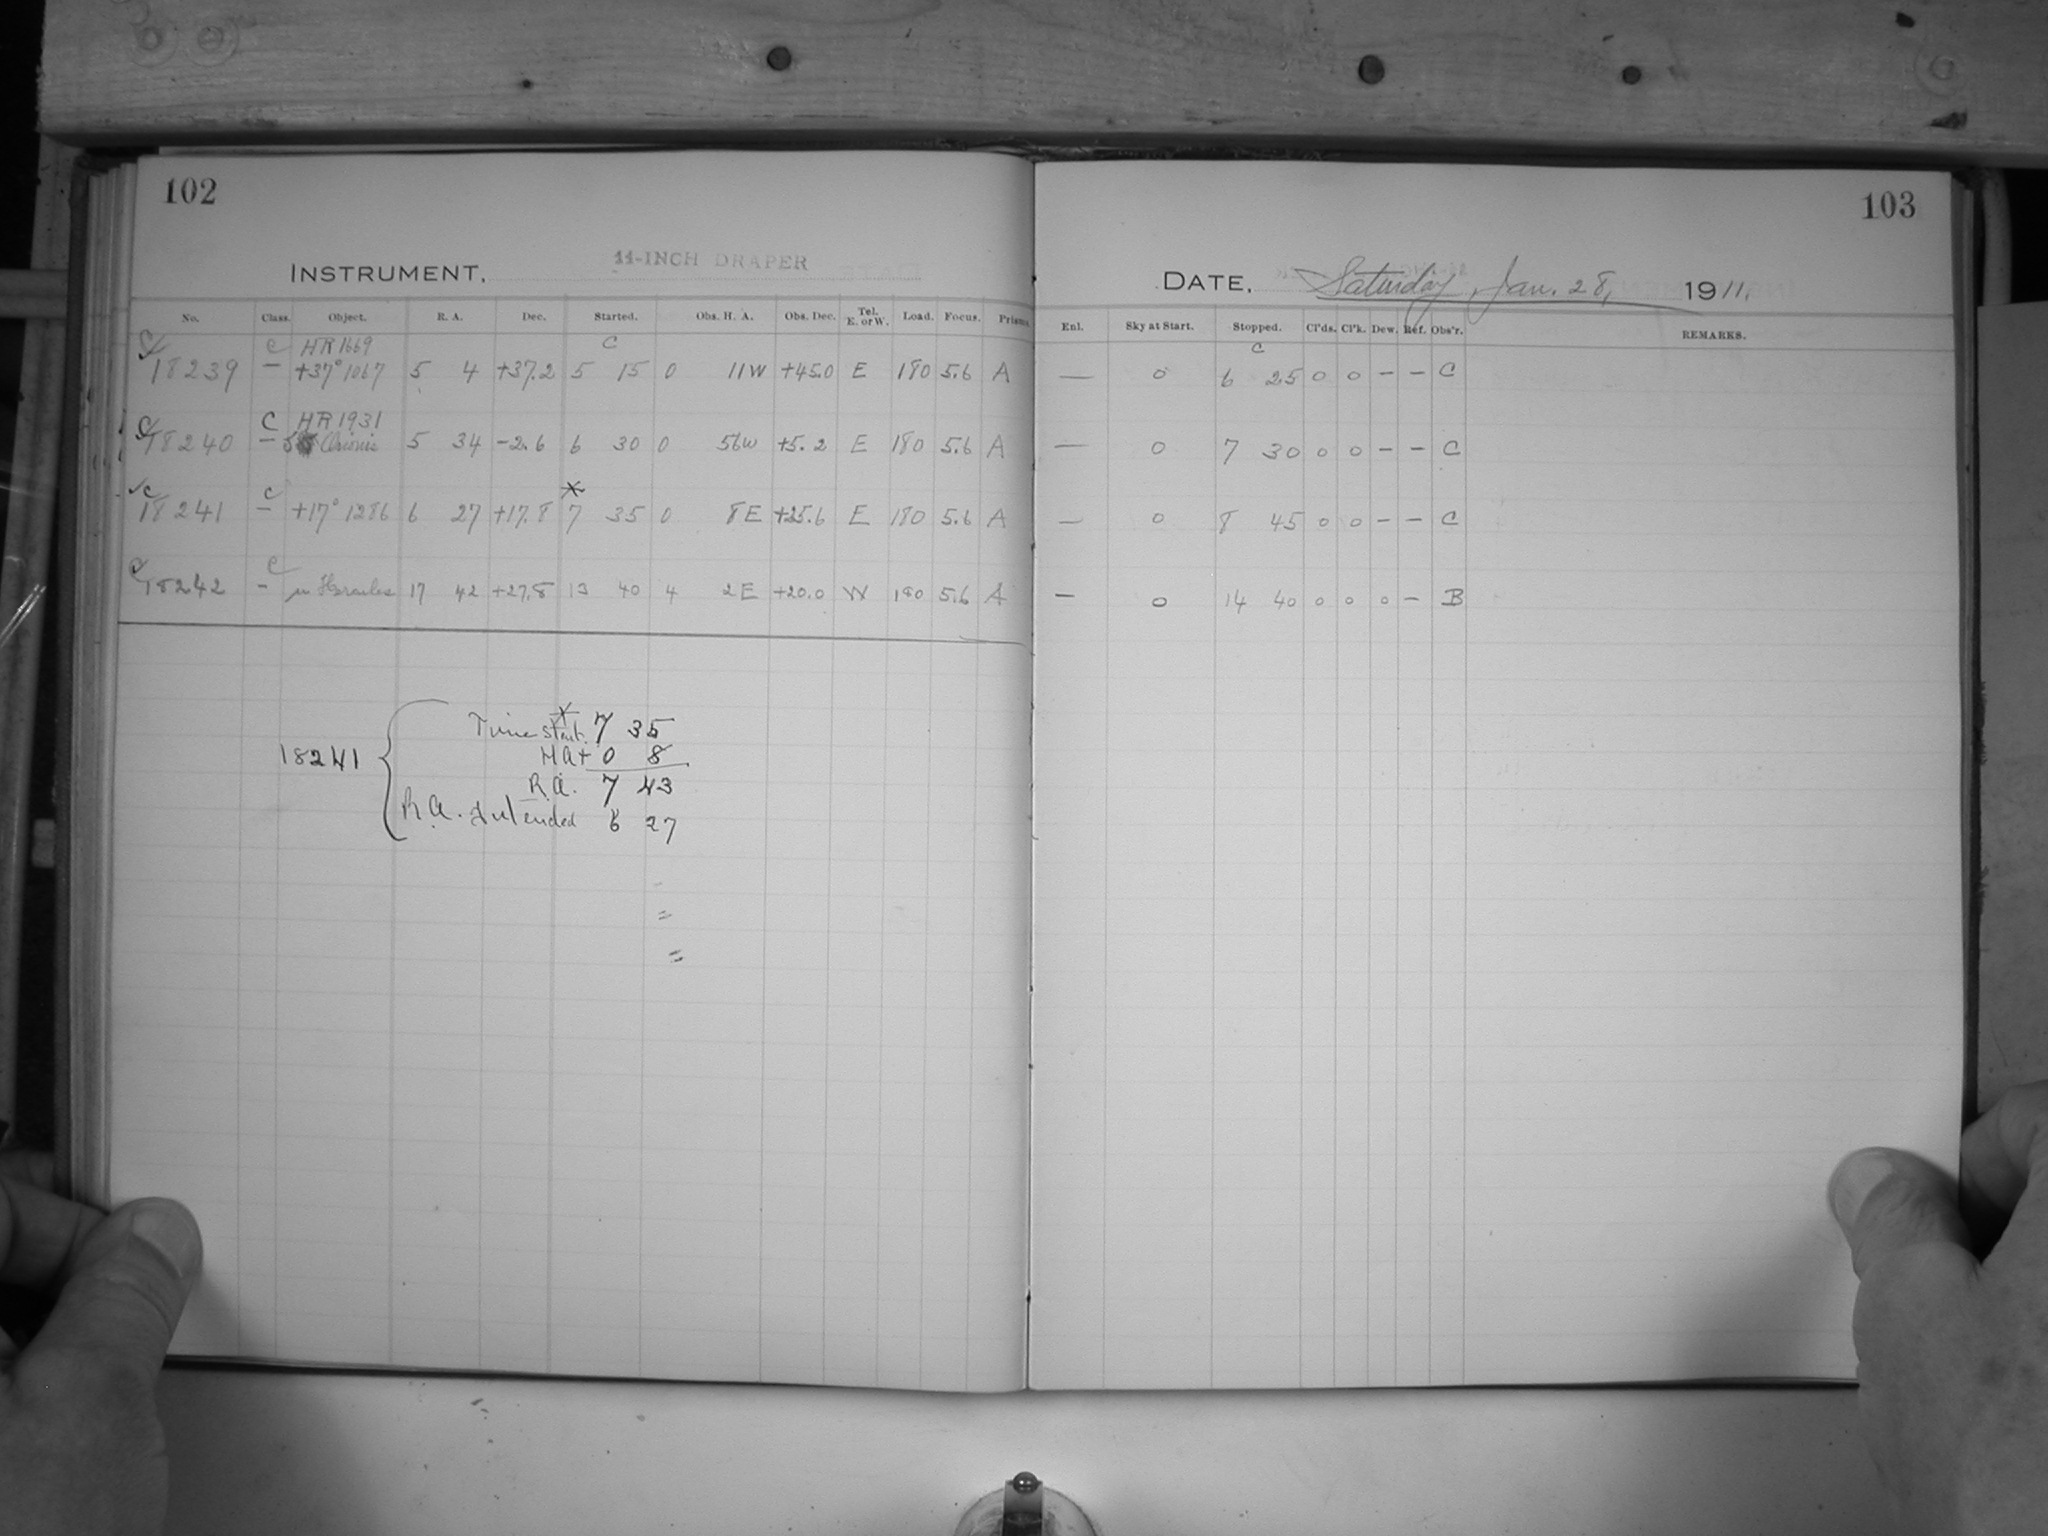 102
103
INSTRUMENT, 11-INCH DRAPER
DATE, Saturday, Jan. 28, 1911.
No. Class. Object. R. A. Dec. Started. Obs. H. A. Obs. Dec. Tel. E. or W. Load. Focus. Prisms
Enl. Sky at Start. Stopped. Cl'ds. Cl'k. Dew. Ref. Obs'r. REMARKS.
C C HR 1669 C C
18239 — +37° 1067 5 4 +37.2 5 15 0 11W +45.0 E 180 5.6 A — 0 6 25 0 0 – – C
C C HR 1931
18240 — Orionis 5 34 -2.6 6 30 0 56W +5.2 E 180 5.6 A — 0 7 30 0 0 – – C
C C *
18241 – +17° 1286 6 27 +17.8 7 35 0 8E +25.6 E 180 5.6 A — 0 8 45 0 0 – – C
C C
18242 – u Herculis 17 42 +27.8 13 40 4 2E +20.0 W 180 5.6 A – 0 14 40 0 0 0 – B
*
Time start. 7 35
18241 { HA + 0 8
R.A. 7 43
R.A. Intended 6 27